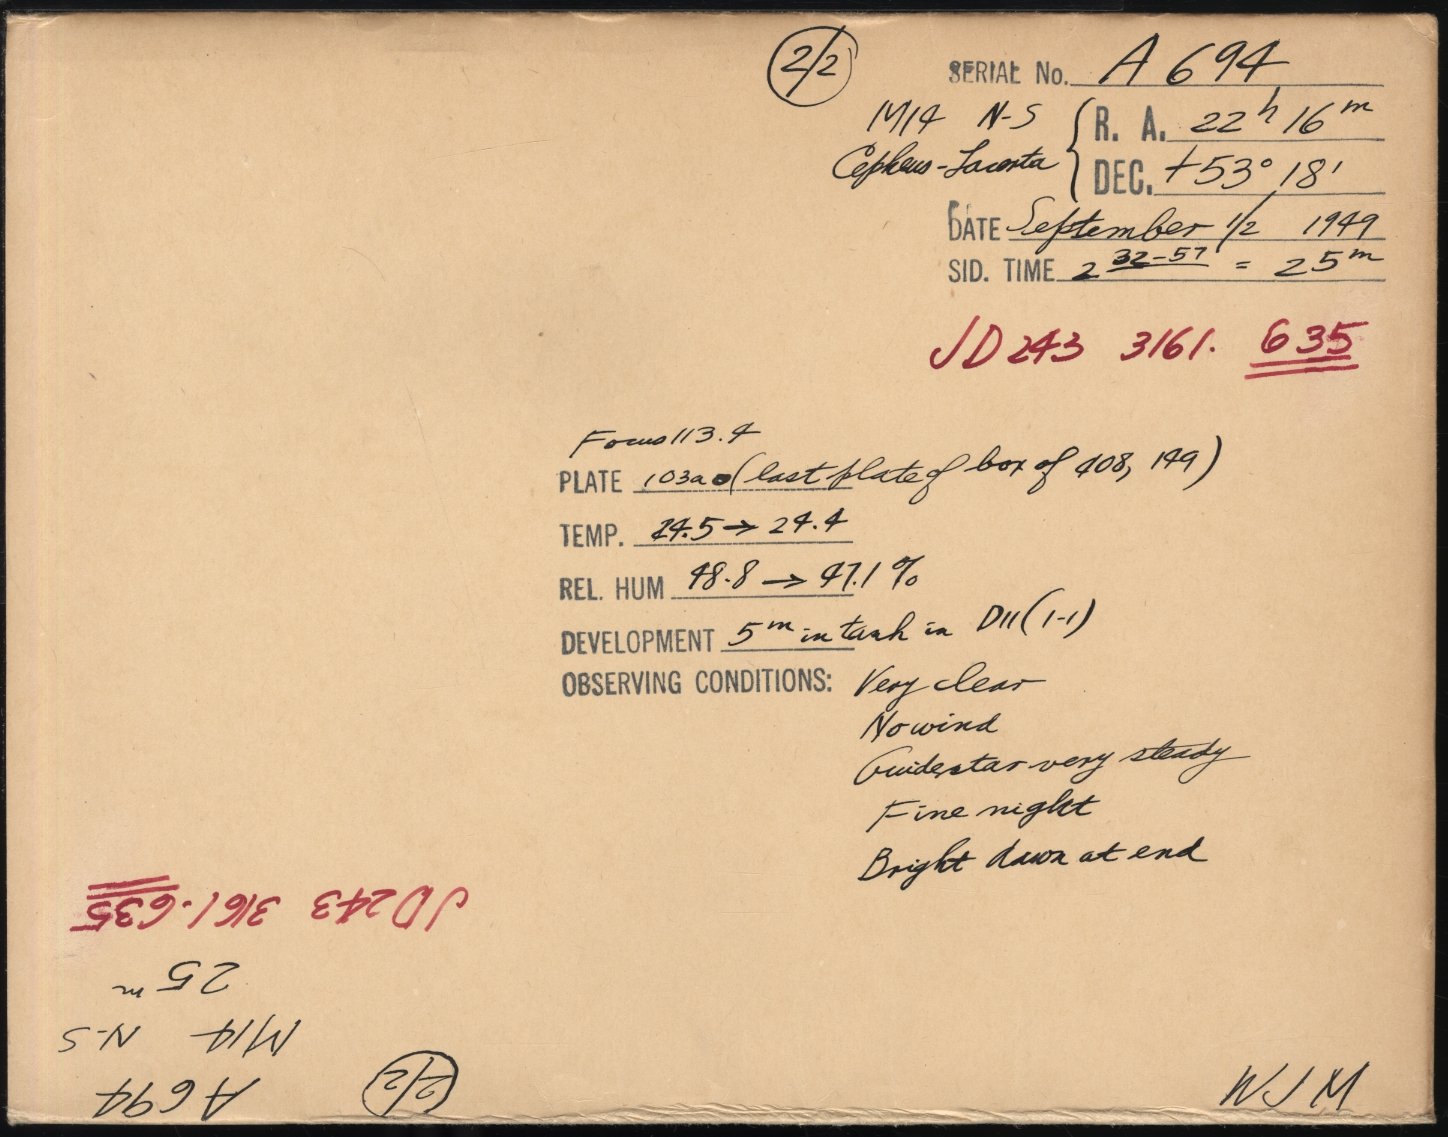 2/2
SERIAL No. A 694
M14 N-S
R. A. 22h 16m
Cepheus-Lacerta
DEC. +53° 18'
DATE September 1/2 1949
SID. TIME 2 32-57 = 25m
JD 243 3161. 635
Focus 113.4
PLATE 103a o (last plate of box of 408, 149)
TEMP. 24.5 → 24.4
REL. HUM 48.8 → 47.1 %
DEVELOPMENT 5m in tank in D11 (1-1)
OBSERVING CONDITIONS: Very clear
No wind
Guidestar very steady
Fine night
Bright dawn at end
JD 243 3161.635
25m
M14 N-S
A 694 2/2
WJM